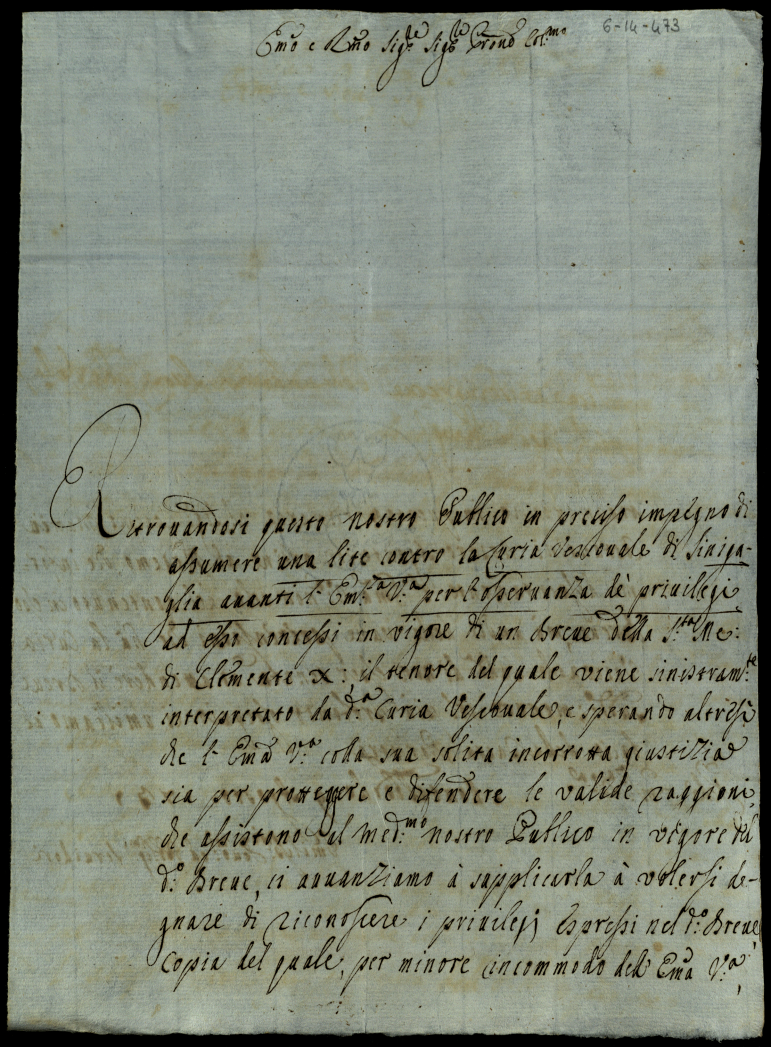 6-14-473
Emo e Rmo Sigre Sigre Prone Colmo
Ritrouandosi questo nostro Publico in preciso impegno di
assumere una lite contro la Curia Vescouale di Siniga-
glia auanti l'Emza Va per l'osseruanza de privilegi
ad esso concessi in vigore di un Breue della Sta Me:
di Clemente X: il tenore del quale viene sinistramte
interpretato da da Curia Vescouale, e sperando altresì
che l'Ema Va colla sua solita incorrotta giustizia
sia per proteggere e difendere le valide raggioni,
che assistono al medmo nostro Publico in vigore del
do Breue, ci auuanziamo à supplicarla à volersi de-
gnare di riconoscere i privilegj espressi nel do Breue
Copia del quale, per minore incommodo dell'Ema Va,